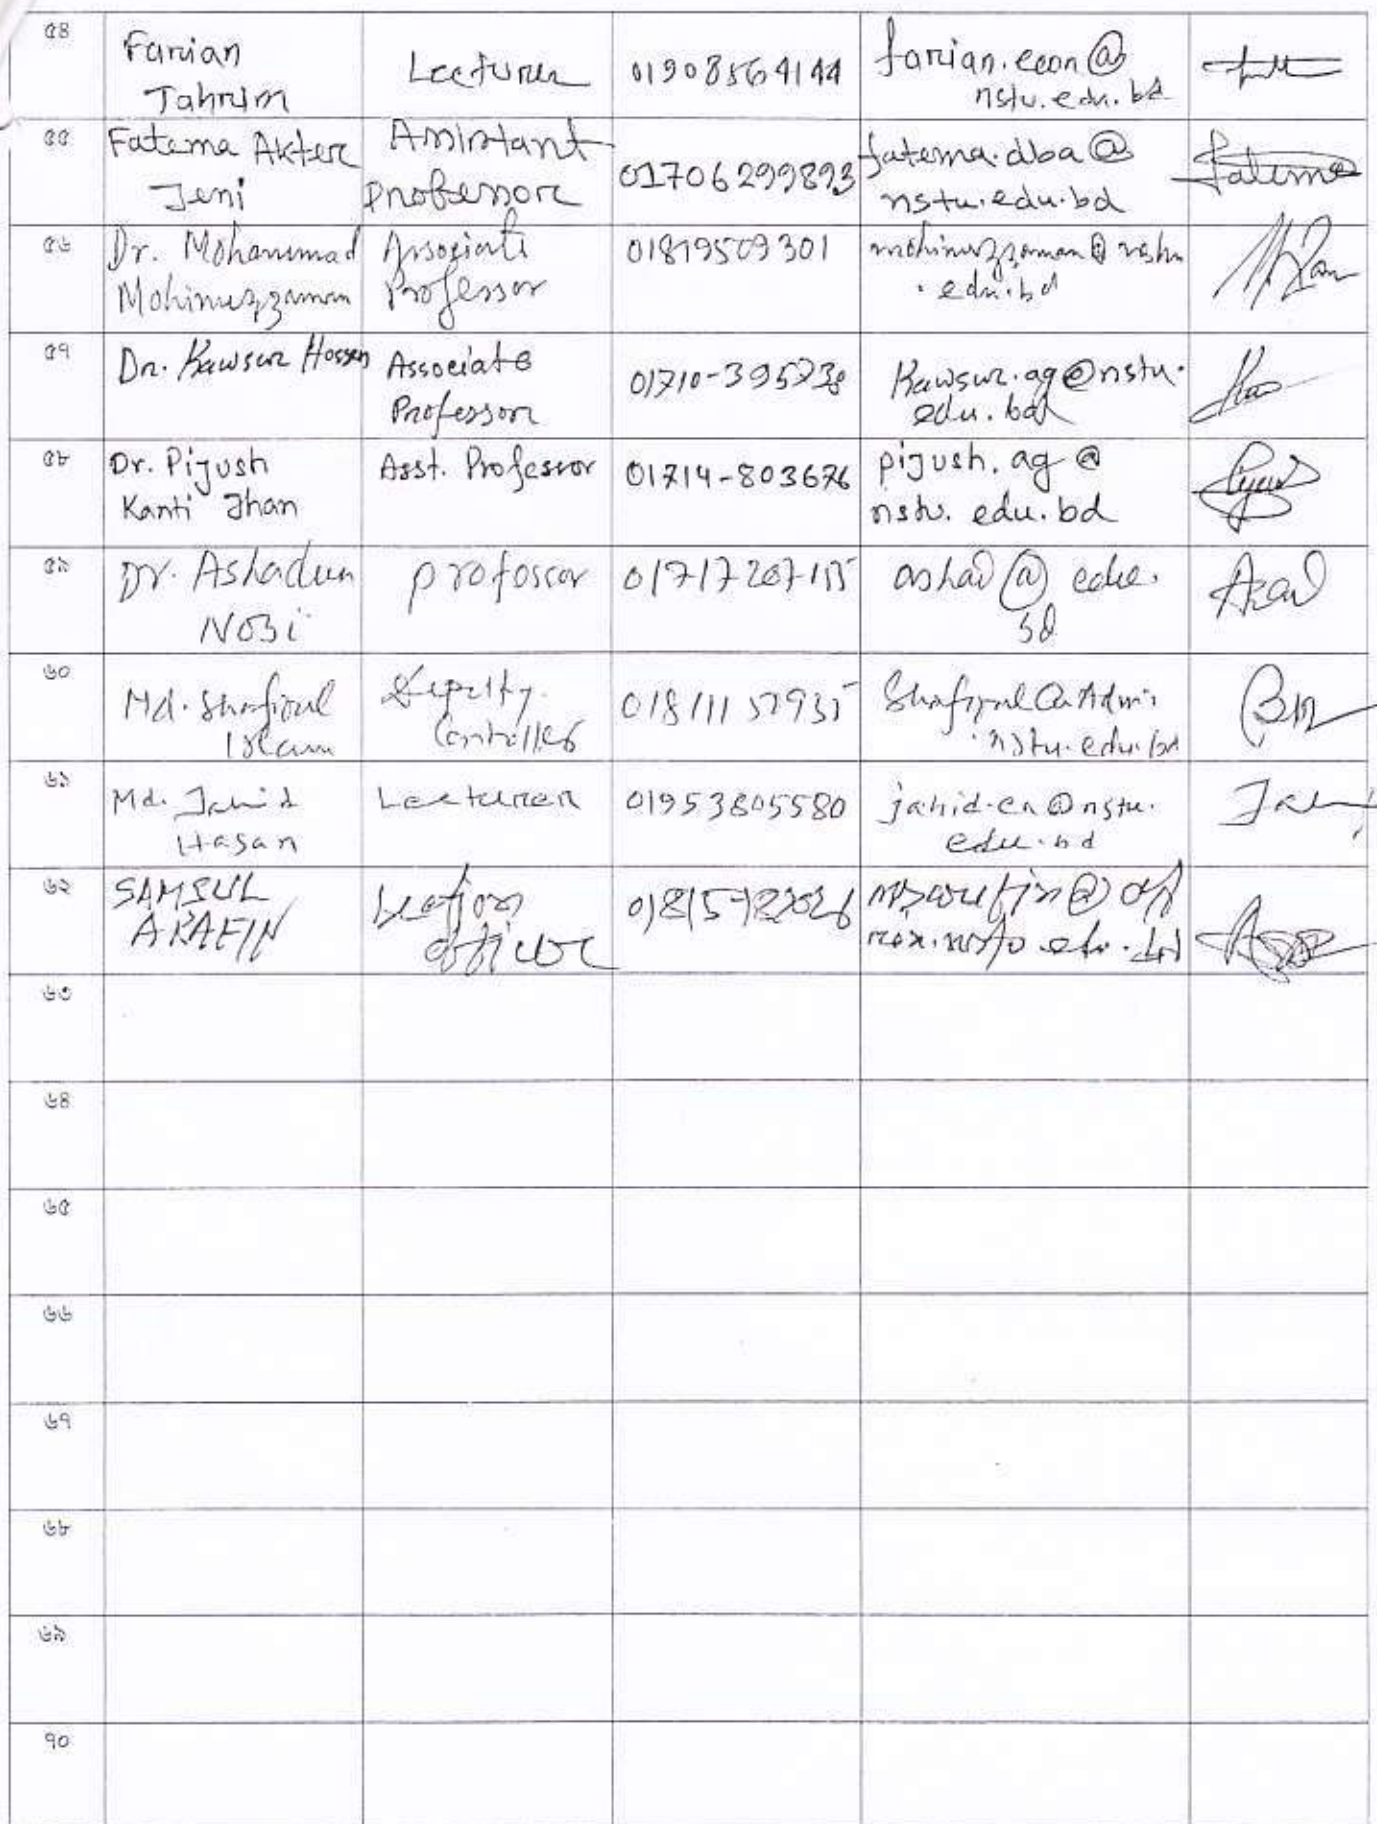 ৫৪
Farian
Tahrim
Lecturer
01908564144
farian.econ@
nstu.edu.bd
৫৫
Fatema Akter
Jeni
Assistant
Professor
01706299893
fatema.dba@
nstu.edu.bd
Fatema
৫৬
Dr. Mohammad
Mohinuzzaman
Associate
Professor
01819509301
mohinuzzaman@nstu
.edu.bd
৫৭
Dr. Kawsur Hossen
Associate
Professor
Kawsur.ag@nstu.
edu.bd
৫৮
Dr. Pijush
Kanti Jhan
Asst. Professor
01714-803676
pijush.ag@
nstu.edu.bd
৫৯
Dr. Ashadun
Nobi
professor
ashad@edu.
bd
৬০
Md. Shafiqul
Islam
Deputy
Controller
nstu.edu.bd
৬১
Md. Jahid
Hasan
Lecturer
01953805580
jahid.en@nstu.
edu.bd
৬২
SAMSUL
ARAFIN
Section
officer
৬৩
৬৪
৬৫
৬৬
৬৭
৬৮
৬৯
৭০